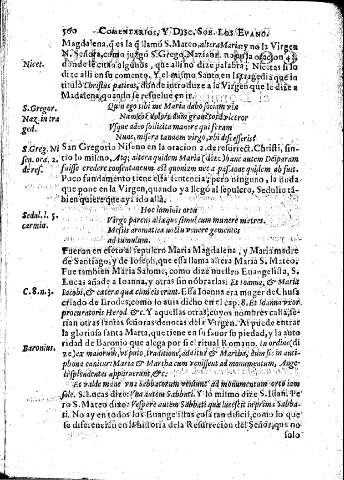 560 COMENTARIOS, Y DISC. SOB. LOS EVANG.
Magdalena, q̃ es la q̃ llamó S. Mateo, altera Maria y no la Virgen
N. Señora, como juzgó S. Greg. Naziane. no en la oracion 42.
Nicet.
donde le citan algunos, que alli no dize palabra; Nicetas si lo
dize alli en su comento. Y el mismo Santo en la tragedia que in
titulo Christus patiens, donde introduze a la Virgen que le dize a
Madalena, quando se resuelue en ir.
S. Gregor.
Naz. in tra
ged.
Quin ego tibi me Maria dabo sociam via
Usque adeo solicita maurer qui feram
Nunc, misera tandem virgo, ubi disesserit
S. Greg. Ni
sen. ora. 2.
de res.
San Gregorio Niseno en la oracion 2. de resurrect. Christi, sin-
tio lo mismo, Atq; altera quidem Maria (dize) hanc autem Deiparam
fuisse credere consentaneum est quoniam nec a passione quidem ab fuit.
Poco fundamento tiene esta sentencia; pero ninguno, la duda
que pone en la Virgen, quando ya llegó al sepulcro, Sedulio tã-
bien quiere que aya ido allá.
Sedul. l. 5.
carmin.
Hoc luminis ortu
Virgo parens aliaque simul cum munere matres
Messis aromatica noctu venere gementes
ad tumulum.
Fueron en efecto al sepulcro Maria Magdalena, y Maria madre
de Santiago, y de Ioseph, que essa llama altera Maria S. Mateo,
Fue tambien Maria Salome, como dize nuestro Euangelista, S.
C. 8. n. 3.
Lucas añade a Ioanna, y otras sin nõbrarlas Et Ioanna, & Maria
Iacobi, & catera qua cum eis erant. Essa Ioanna era muger de Chusa
criado de Erodes, como lo auia dicho en el cap. 8. Et Ioanna vxor
procuratoris Herod &c. Y aquellas otras, cuyos nombres calla, se-
rian otras santas señoras deuotas de la Virgen. Ai puede entrar
la gloriosa santa Marta, que tiene en su fauor su piedad, y la auto
Baronius.
ridad de Baronio que alega por si el ritual Romano. In ordine, (di
ze) ex maiorum, vt puto, traditione, additur & Martha, dum sic in anti-
phona canitur: Maria & Martha cum venissent ad monumentum, Ange-
li splendentes apparuerunt, &c.
Et valde mane vna Sabbatorum veniunt ad monumentum orto iam
sole. S. Lucas dize: vna autem Sabbati. Y lo mismo dize S. Iuan. Pe
ro S. Mateo dize: Vespere autem Sabbati qua lucescit in prima Sabba-
ti. No ay en todos los Euangelistas cosa tan dificil, como lo que
se diferencian en la historia de la Resurreccion del Señor, que no
solo